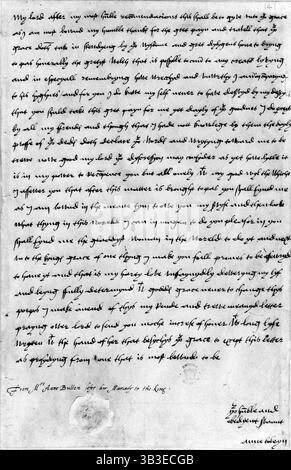 My lord after my most humble recommendations this shall be to gyve unto yor grace
as I am most bownd my humble thanks for the gret payn and travell that yr
grace doth take in stewdyeng by yor wysdome and gret dylygens howe to bryng
to pas honerably the gretyst welth that is possible to come to any creatour lyving
and in especyall remembryng how wretched and unworthy I am in comparyng
to his hyghnes and for you I do knowe my self never to have deservyd by my deserts
that you shuld take this gret payn for me yet dayly of yor goodnes I do perceyve
by all my frends and though that I hade not knowlege by them the dayly
proffe of yor deds doth declare yor words and wrytyng toward me to be
trewe nowe good my lord yor dyscressyon may consider as yet how lyttle it
is in my power to recompence you but all onely wt my good wyl the whiche
I assewer you that after this matter is brought to pas you shall fynd me
as I am bownd in the meane tym to owe you my servyse and then looke
what thyng in this woreld I can inmagyn to do you pleasor in you
shall fynd me the gladyst woman in the woreld to do yt and next
unto the kyngs grace of one thyng I make you full promes to be assewryd
to have yt and that is my harty love unfaynydly deweryng my lyf
and beyng fully determynd wt goddes grace never to change thys
porpos I make an end of thys my reude and trewe meanyd letter
prayng ower lord to send you moche increse of honer wt long lyfe
wrytten wt the hand of her that besychys yor grace to except this letter
as prosydyng from one that is most bownde to be
From Mrs Anne Bullen after her Maiesty to the king.
yor humble and
obedyent servant
anne boleyn
alamy
E3ECGB